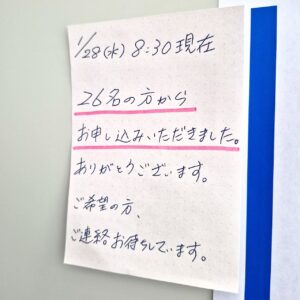 1/28(水) 8:30現在
26名の方から
お申し込みいただきました。
ありがとうございます。
ご希望の方、
ご連絡お待ちしています。